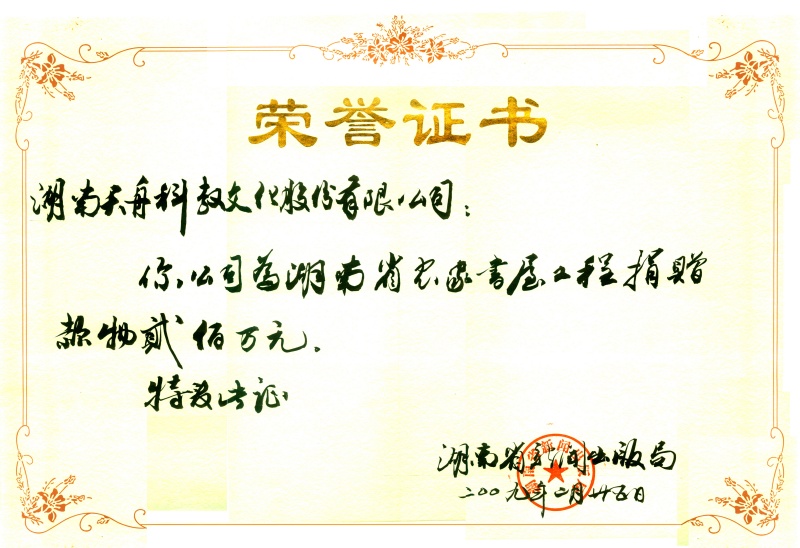 荣誉证书
湖南天舟科教文化股份有限公司：
你公司为湖南省农家书屋工程捐赠
款物贰佰万元.
特发此证
湖南省新闻出版局
二00九年二月廿五日